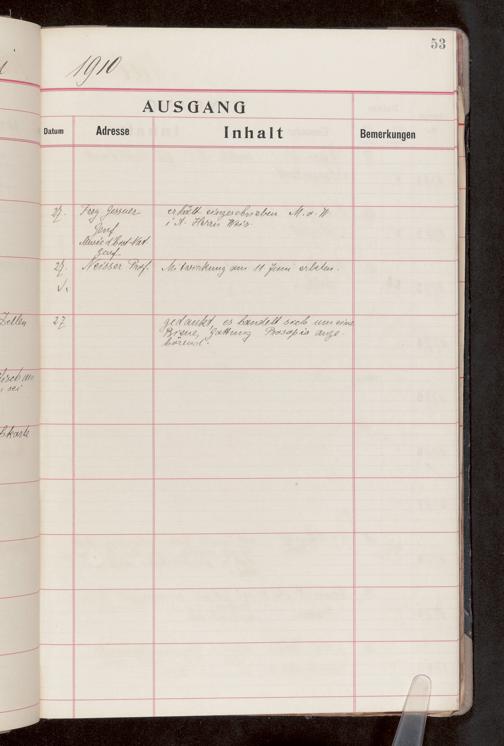 53
1910
AUSGANG
Datum Adresse Inhalt Bemerkungen
27. Frey Gessner erhält eingeschrieben M. d. W
Genf i. A. Herrn Weis
Musée d'hist. Nat
Genf.
27. Neisser Prof. Mitwirkung am 11 Juni erbeten.
V.
27 gedankt, es handelt sich um eine
Biene, Gattung Prosopis ange-
hörend.
Zellen
sei